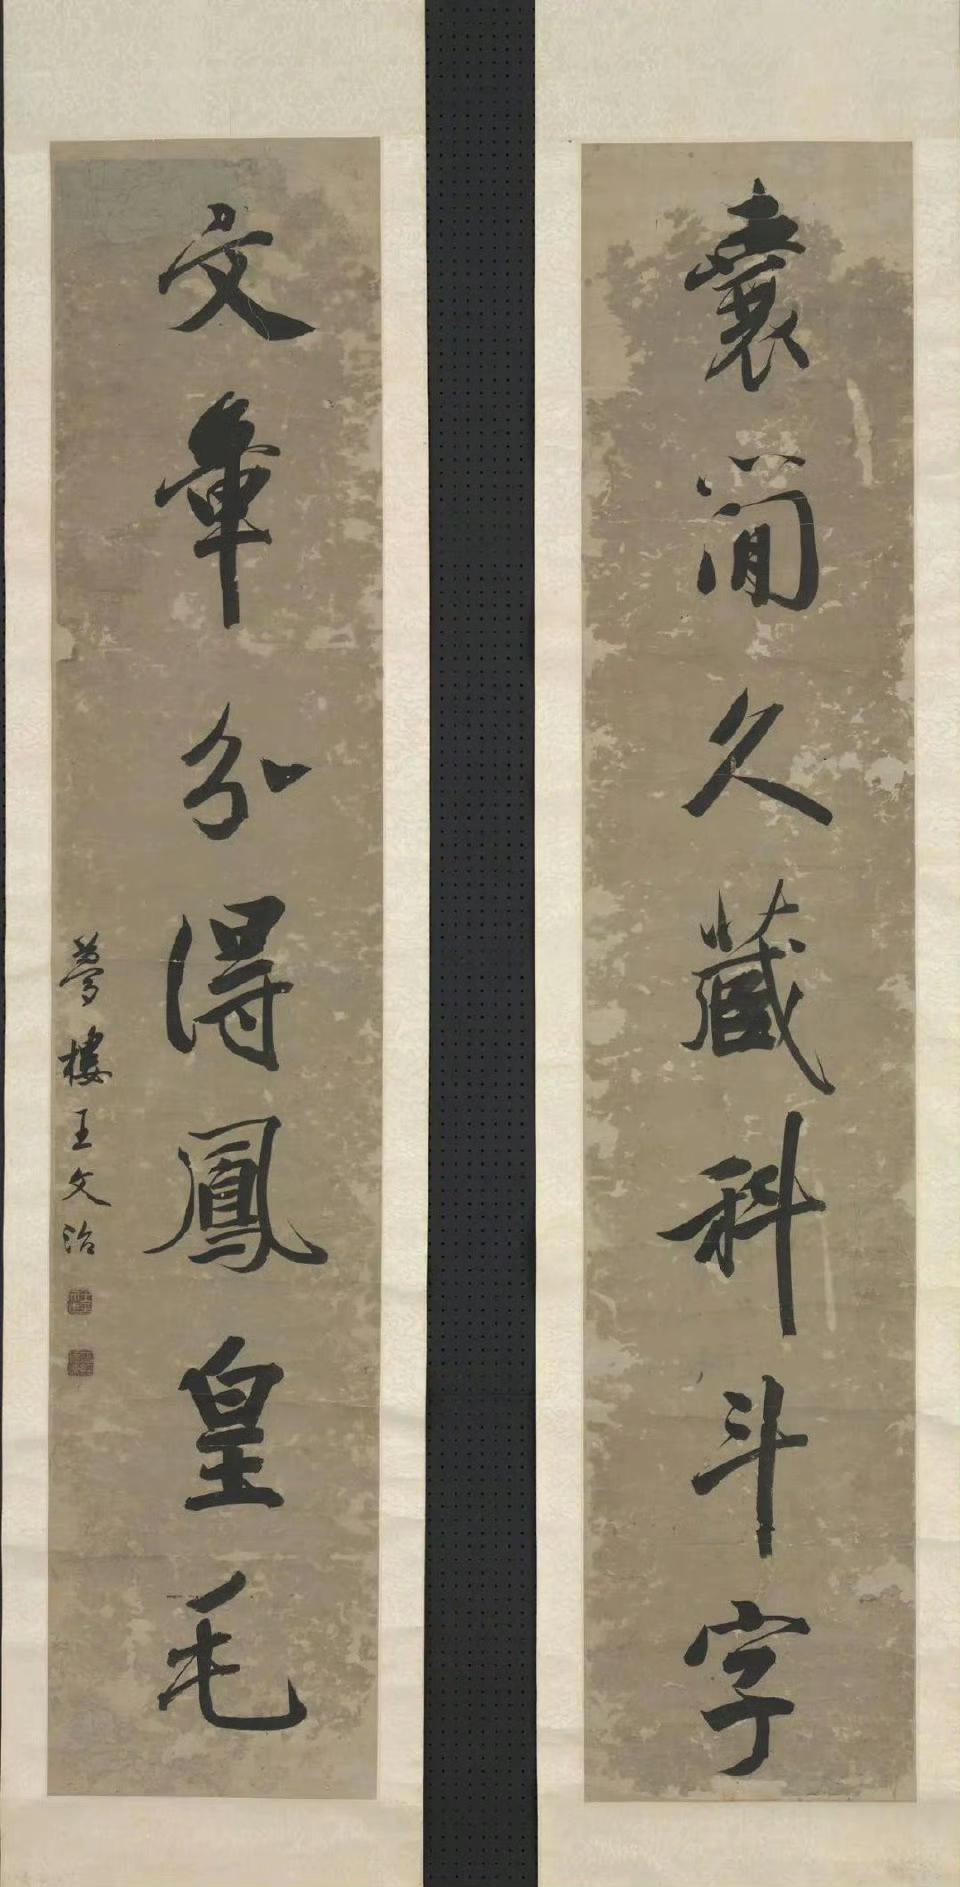 囊簡久藏科斗字
文章分得鳳皇毛
夢樓王文治